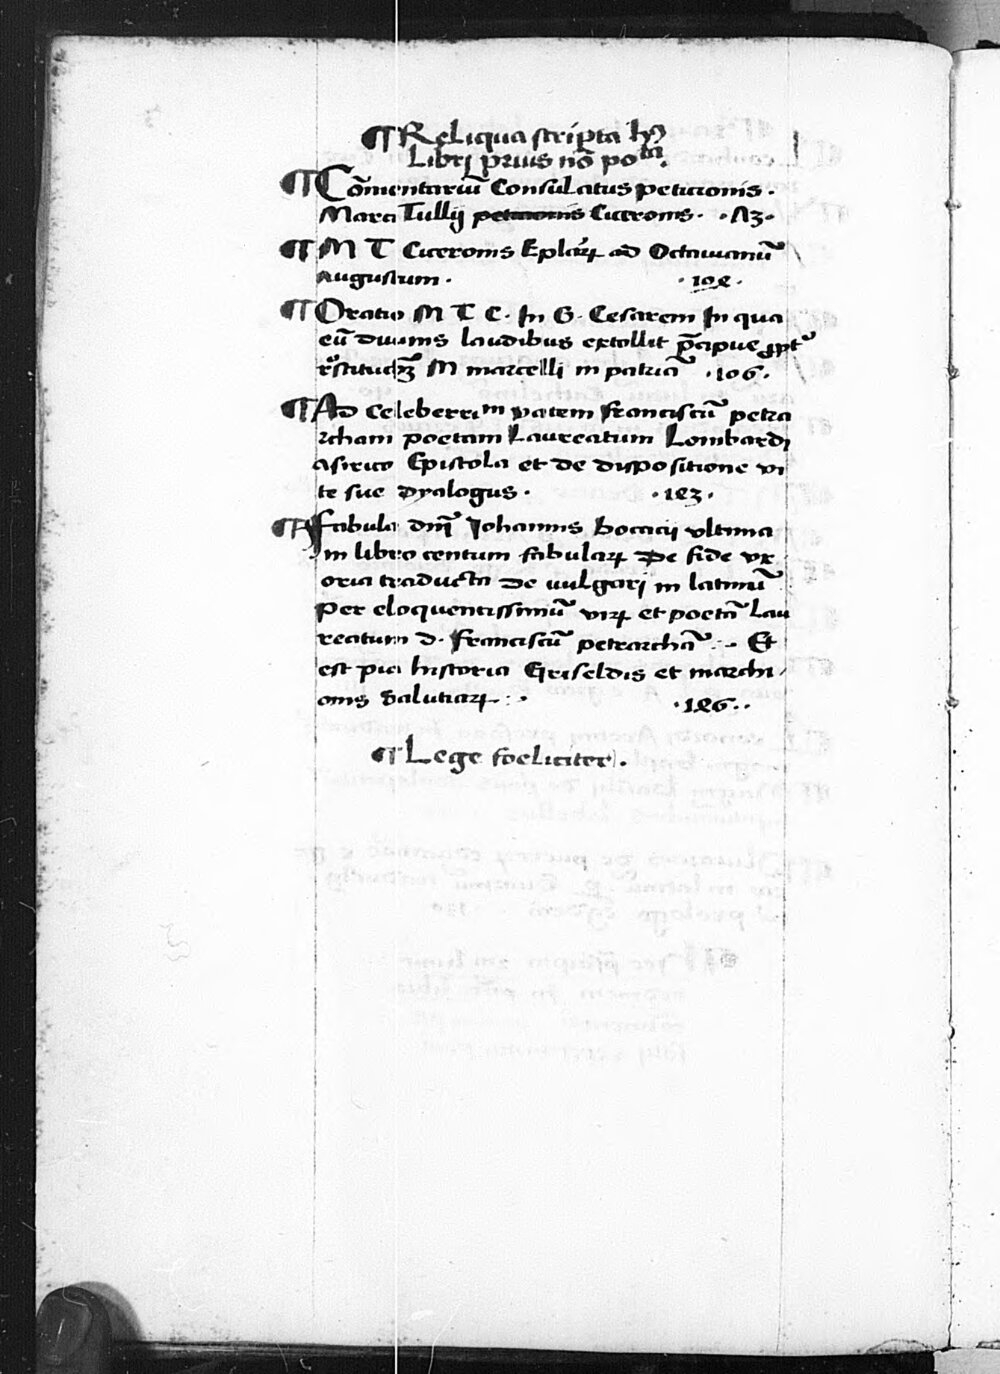 ¶ Reliqua scripta hꝰ
Librj prius nō pota.
¶ Cōmentariū Consulatus peticionis.
Marci Tullij peticionis Ciceronis. .93.
¶ M T Ciceronis Eplaꝝ ad Octauianū
Augustum. .102.
¶ Oratio M T C. In G. Cesarem In qua
eū diuinis laudibus extollit p̄cipue ꝓpt᷑
M marcelli in patriā .106.
¶ Ad Celeberrim vatem Franciscū petra
rcham poetam Laureatum Lombardj
asirico Epistola et de dispositione vi
te sue dyalogus. .123.
¶ Fabula dnī Iohannis bocacij vltima
in libro centum fabulaꝝ De fide vx
oria traducta de vulgarj in latinū
per eloquentissimū virꝝ et poetā lau
reatum d. Franciscū petrarchā. Et
est pia historia Griseldis et marchi
onis Salutiaꝝ. .126.
¶ Lege foeliciter.